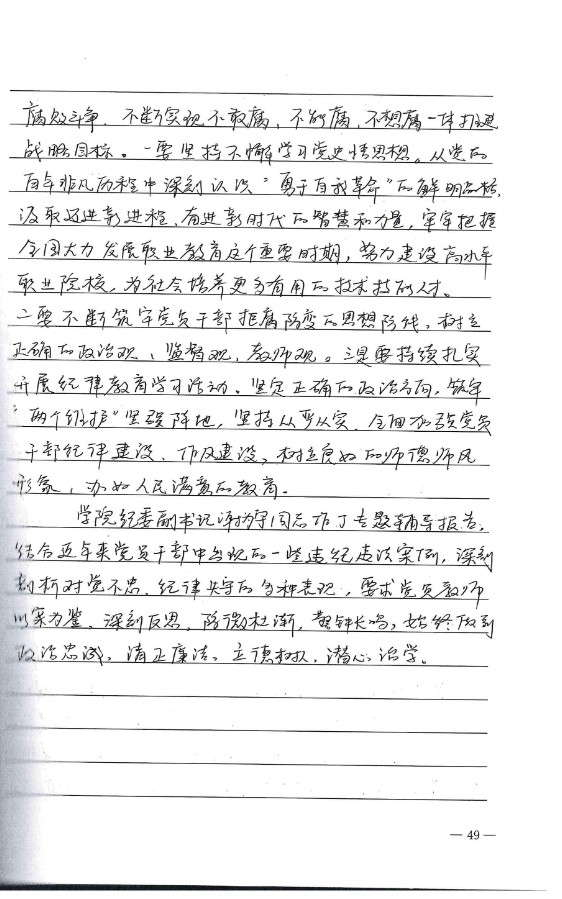 腐败斗争、不断实现不敢腐，不能腐，不想腐一体推进
战略目标。一要坚持不懈学习党史悟思想。从党的
百年非凡历程中深刻认识“勇于自我革命”的鲜明品格，
汲取迈进新进程、奋进新时代的智慧和力量，牢牢把握
全国大力发展职业教育这个重要时期，努力建设高水平
职业院校，为社会培养更多有用的技术技能人才。
二要不断筑牢党员干部拒腐防变的思想防线，树立
正确的政治观、监督观、教师观。三是要持续扎实
开展纪律教育学习活动。坚定正确的政治方向，筑牢
“两个维护”坚强阵地，坚持从严从实、全面加强党员
干部纪律建设、作风建设，树立良好的师德师风
形象，办好人民满意的教育。
学院纪委副书记 同志作了专题辅导报告，
结合近年来党员干部中出现的一些违纪违法案例，深刻
剖析对党不忠、纪律失守的多种表现，要求党员教师
以案为鉴、深刻反思、防微杜渐，警钟长鸣，始终做到
政治忠诚、清正廉洁、立德树人、潜心治学。
— 49 —